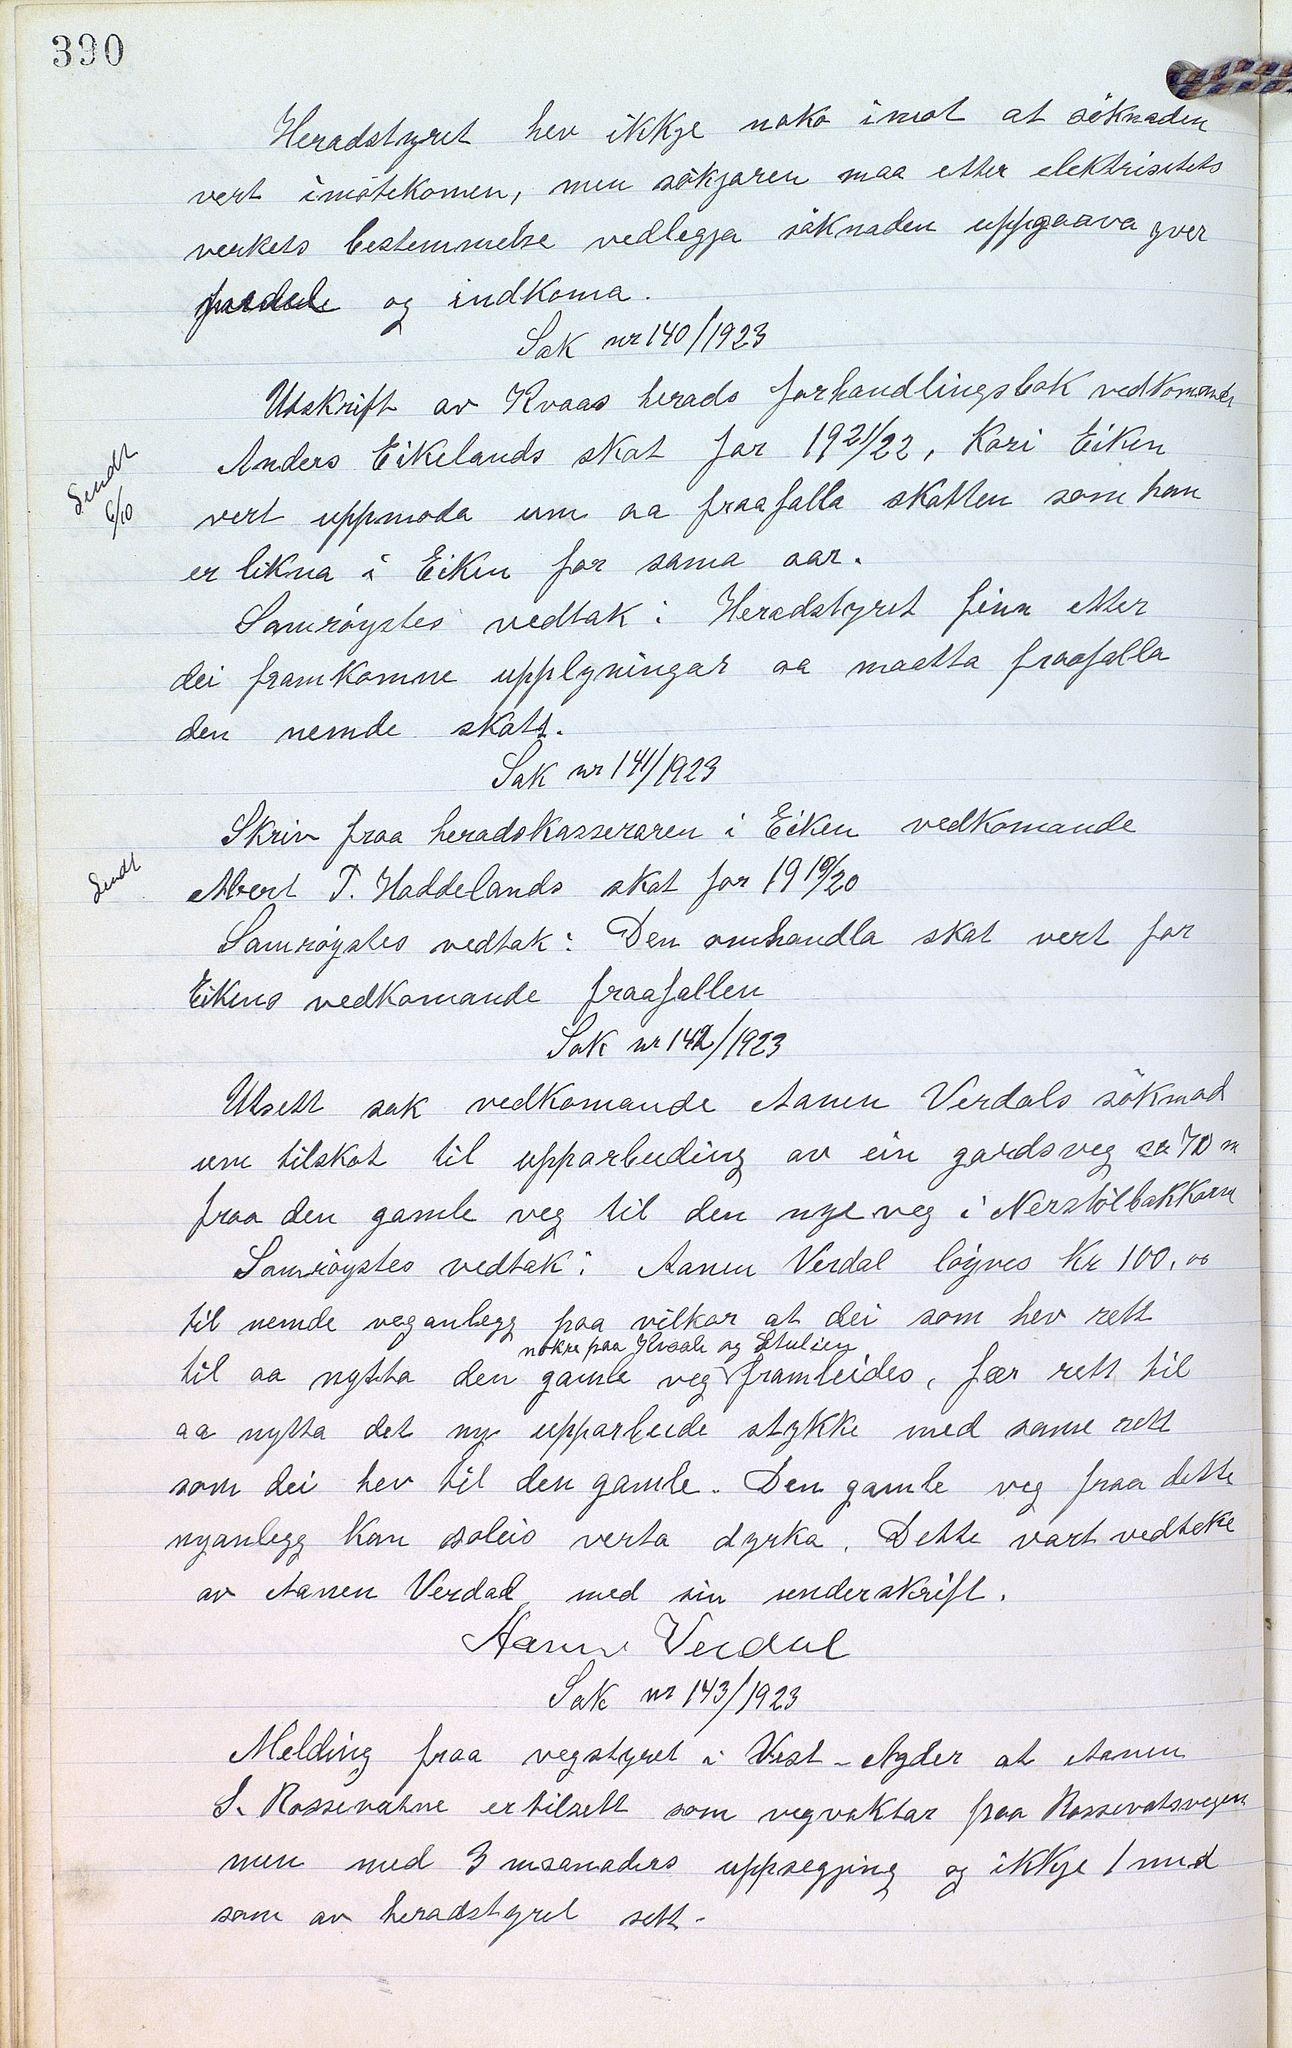 390
Heradstyret hev ikkje noko imot at söknaden
vert imötekomen, men sökjaren maa etter elektrisitets
verkets bestemmelse vedlegja söknaden uppgaava yver
og indkoma.
Sak nr 140/1923
Utskrift av Kvaas herads forhandlingsbok vedkomande
Anders Eikelands skat for 1921/22, Kori Eiken
Sendt
6/10
vert uppmoda um aa fraafalla skatten som han
er likna i Eiken for sama aar.
Samröystes vedtak: Heradstyret finn etter
dei framkomne upplyningar aa maatta fraafalla
den nemde skatt.
Sak nr 141/1923
Skriv fraa heradskasseraren i Eiken vedkomande
Sendt
Albert T. Haddelands skat for 1919/20
Samröystes vedtak: Den omhandla skat vert for
Eikens vedkomande fraafallen
Sak nr 142/1923
Utsett sak vedkomande Aanen Verdals söknad
um tilskot til upparbeiding av ein gardsveg ca 70 m
fraa den gamle veg til den nye veg i Nerstölbakkann
Samröystes vedtak: Aanen Verdal löyves Kr 100,00
til nemde veganlegg paa vilkor at dei som hev rett
nokre paa og
til aa nytta den gamle veg framleides, fær rett til
aa nytta det ny upparbeide stykke med same rett
som dei hev til den gamle. Den gamle veg fraa dette
nyanlegg kan soleis verta dyrka. Dette vart vedteke
av Aanen Verdal med sin underskrift.
Aanen Verdal
Sak nr 143/1923
Melding fraa vegstyret i Vest-Agder at Aanen
S. Rossevatne er tilsett som vegvaktar fraa Rossevatsvegen
men med 3 maanaders uppsegjing og ikkje 1 mnd
som av heradstyret sett.